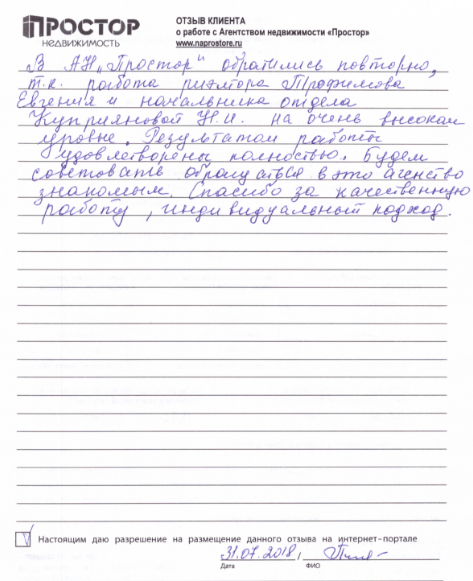 ПРОСТОР
НЕДВИЖИМОСТЬ
ОТЗЫВ КЛИЕНТА
о работе с Агентством недвижимости «Простор»
www.naprostore.ru
В АН „Простор" обратились повторно,
т.к. работа риэлтора Трофимова
Евгения и начальника отдела
Куприяновой Н.И. на очень высоком
уровне. Результатом работы
удовлетворены полностью. Будем
советовать обращаться в это агенство
знакомым. Спасибо за качественную
работу, индивидуальный подход.
Настоящим даю разрешение на размещение данного отзыва на интернет-портале
31.07.2018,
Дата ФИО